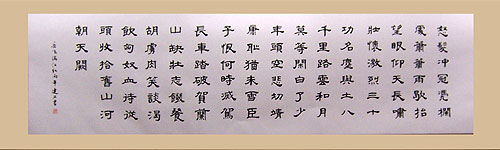 怒髮冲冠憑欄
處蕭蕭雨歇抬
望眼仰天長嘯
壯懷激烈三十
功名塵與土八
千里路雲和月
莫等閒白了少
年頭空悲切靖
康恥猶未雪臣
子恨何時滅駕
長車踏破賀蘭
山缺壯志飢餐
胡虜肉笑談渴
飲匈奴血待從
頭收拾舊山河
朝天闕
岳飛滿江紅